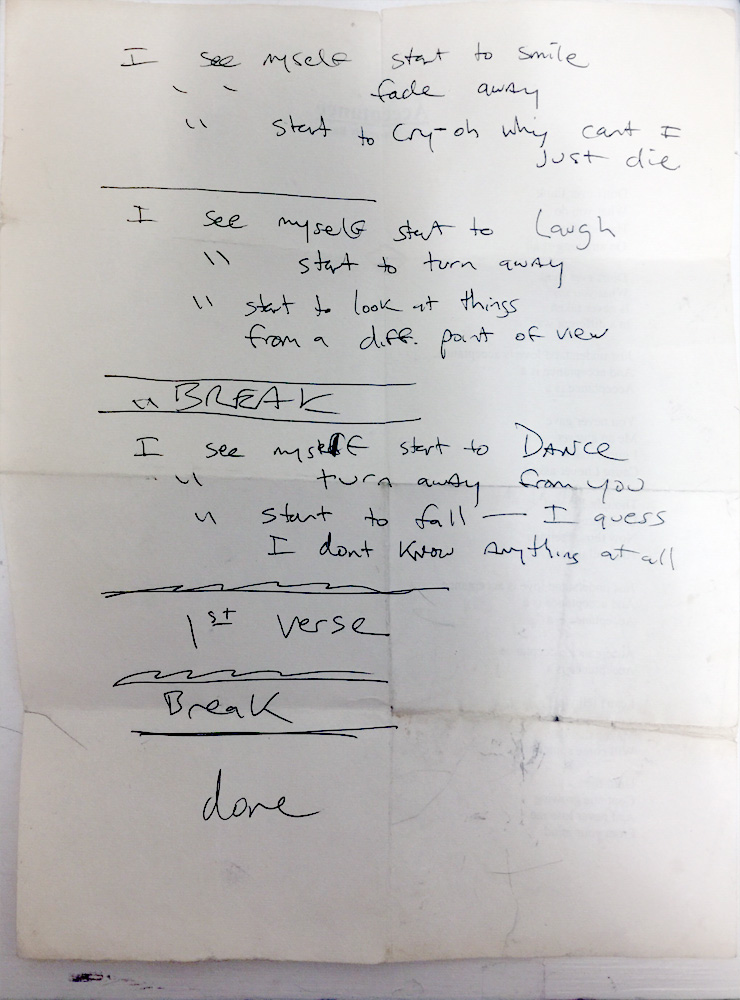 I see myself start to smile
" " fade away
" start to cry-oh why cant I
just die
I see myself start to Laugh
" start to turn away
" start to look at things
from a diff. point of view
" BREAK
I see myself start to DANCE
" turn away from you
" start to fall — I guess
I dont know anything at all
1st verse
Break
done